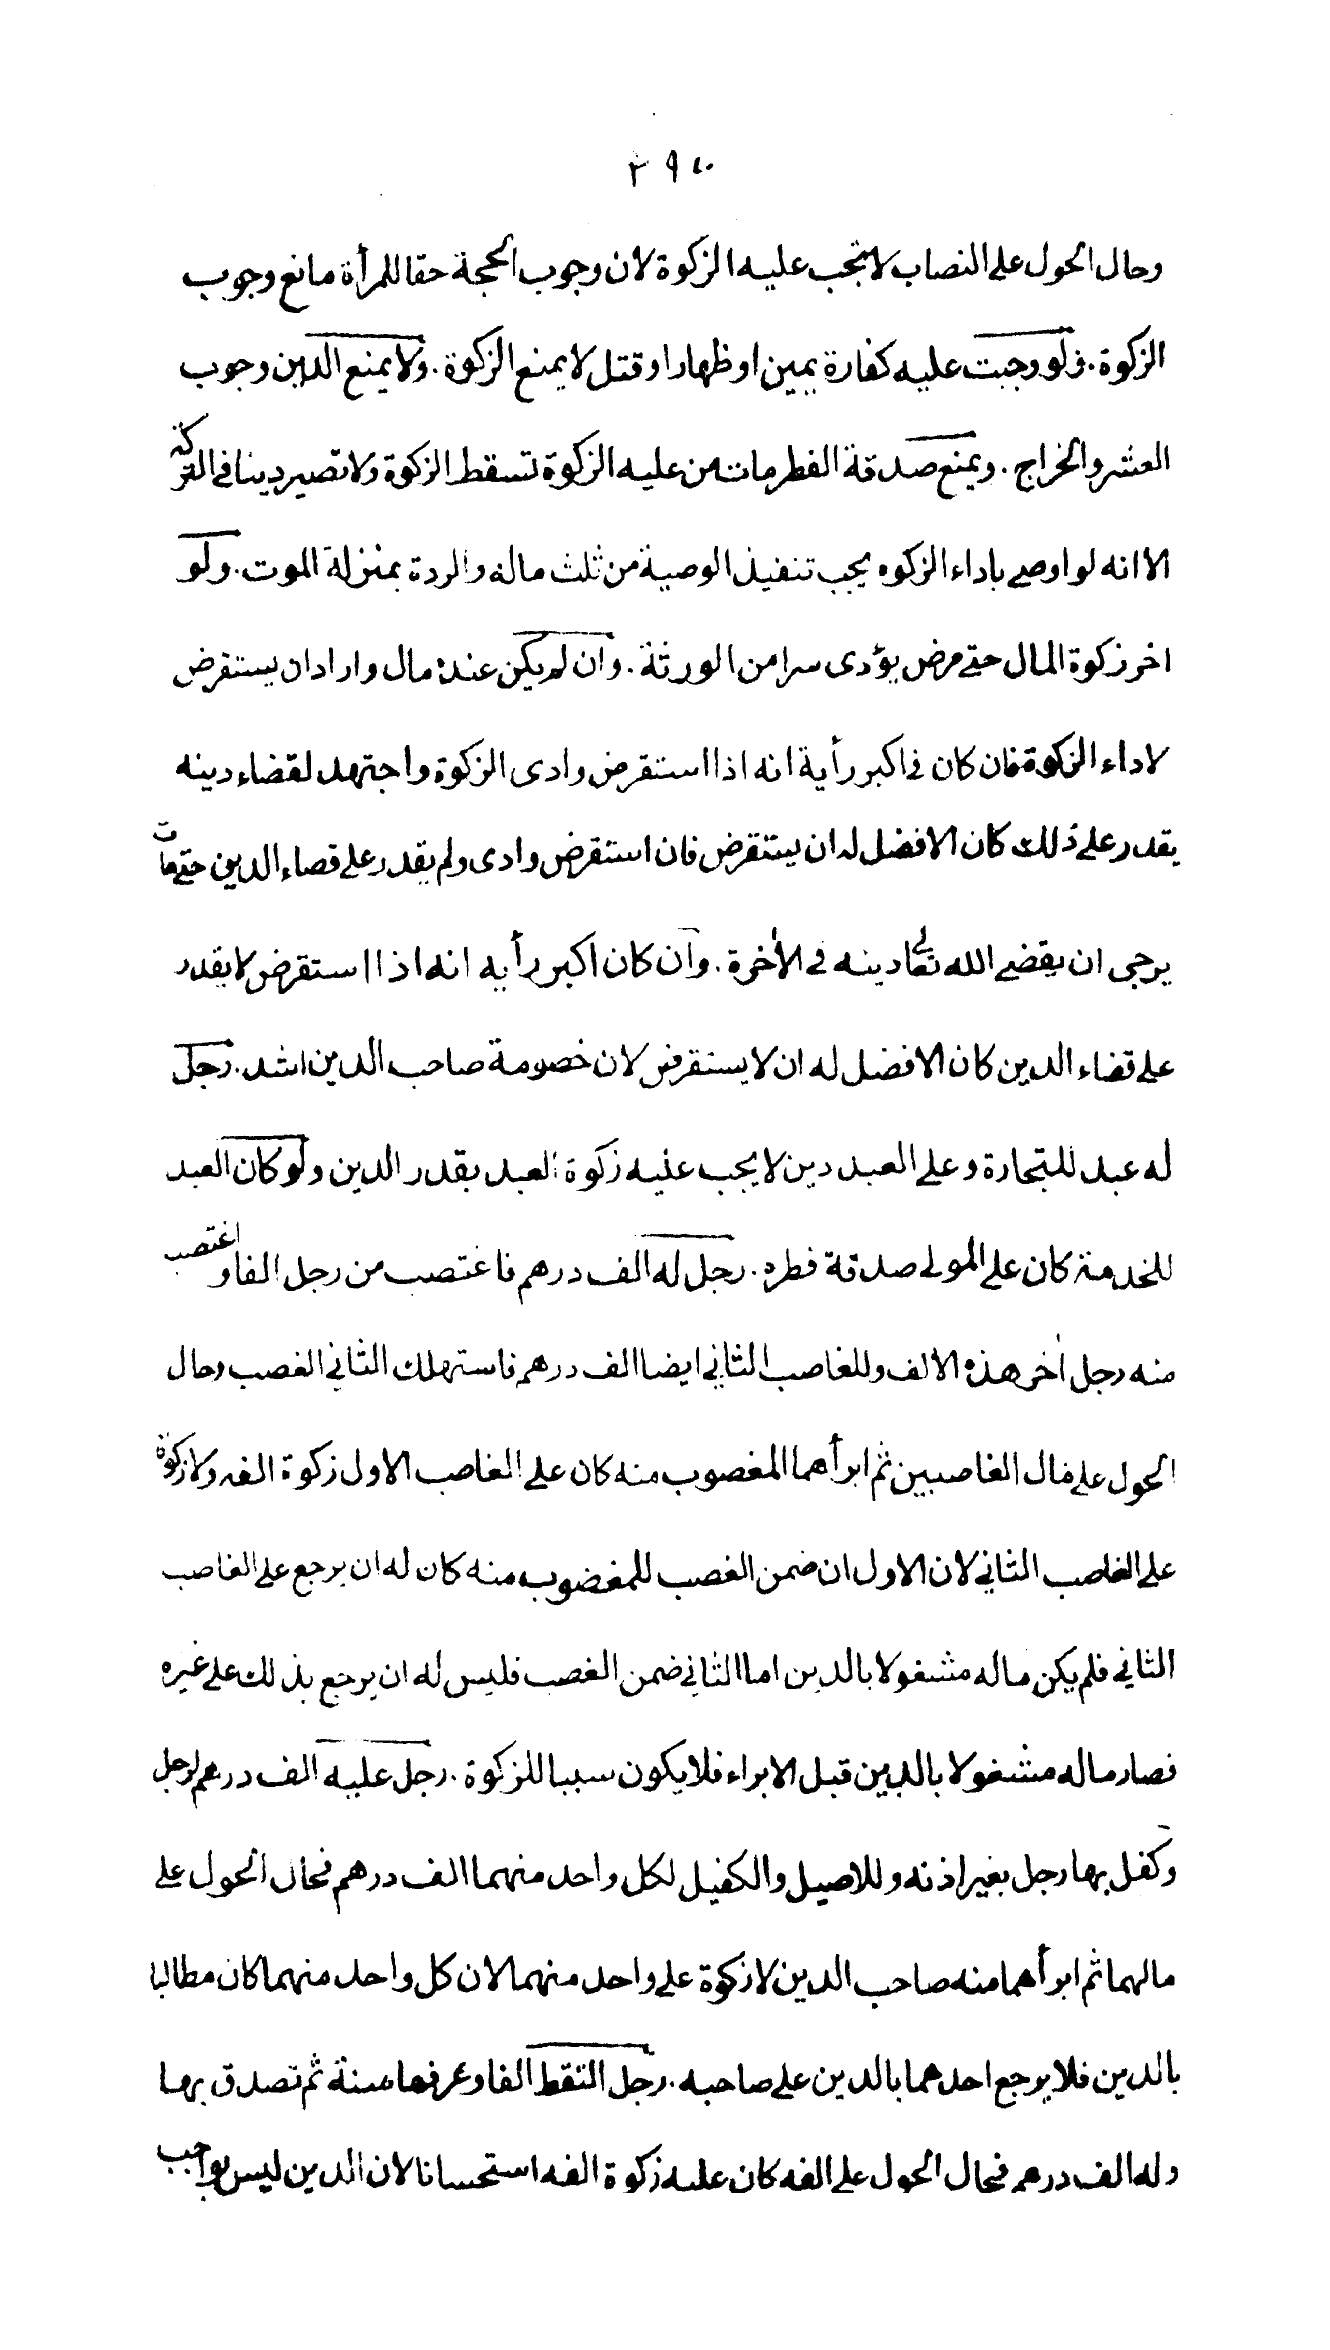 ٢٩٠
وحال الحول على النصاب لا تجب عليه الزكوة لان وجوب الحجة حقا للمرأة مانع وجوب
الزكوة. ولو وجبت عليه كفارة يمين او ظهار او قتل لا يمنع الزكوة. ولا يمنع الدين وجوب
العشر والخراج. ويمنع صدقة الفطر مات من عليه الزكوة تسقط الزكوة ولا تصير دينا في التركة
الا انه لو اوصى باداء الزكوه يجب تنفيذ الوصية من ثلث ماله والردة بمنزلة الموت. ولو
اخر زكوة المال حتى مرض يؤدى سرا من الورثة. وان لم يكن عنده مال واراد ان يستقرض
لاداء الزكوة فان كان في اكبر رأية انه اذا استقرض وادى الزكوة واجتهد لقضاء دينه
يقدر على ذلك كان الافضل له ان يستقرض فان استقرض وادى ولم يقدر على قضاء الدين حتى مات
يرجى ان يقضى الله تعالى دينه في الأخرة. وان كان اكبر رأيه انه اذا استقرض لا يقدر
على قضاء الدين كان الافضل له ان لا يستقرض لان خصومة صاحب الدين اشد. رجل
له عبد للتجارة وعلى العبد دين لا يجب عليه زكوة العبد بقدر الدين ولو كان العبد
للخدمة كان على المولى صدقة فطره. رجل له الف درهم فاغتصب من رجل الفا واغتصب
منه رجل أخر هذه الالف وللغاصب الثاني ايضا الف درهم فاستهلك الثاني الغصب وحال
الحول على مال الغاصبين ثم ابرأهما المغصوب منه كان على الغاصب الاول زكوة الفه ولا زكوة
على الغاصب الثاني لان الاول ان ضمن الغصب للمغضوب منه كان له ان يرجع على الغاصب
الثاني فلم يكن ماله مشغولا بالدين اما الثاني ضمن الغصب فليس له ان يرجع بذلك على غيره
فصار ماله مشغولا بالدين قبل الابراء فلا يكون سببا للزكوة. رجل عليه الف درهم لرجل
وكفل بها رجل بغير اذنه وللاصيل والكفيل لكل واحد منهما الف درهم فحال الحول على
مالهما ثم ابرأهما منه صاحب الدين لا زكوة على واحد منهما لان كل واحد منهما كان مطالبا
بالدين فلا يرجع احدهما بالدين على صاحبه. رجل التقط الفا وعرفها سنة ثم تصدق بها
وله الف درهم فحال الحول على الفه كان عليه زكوة الفه استحسانا لان الدين ليس بواجب